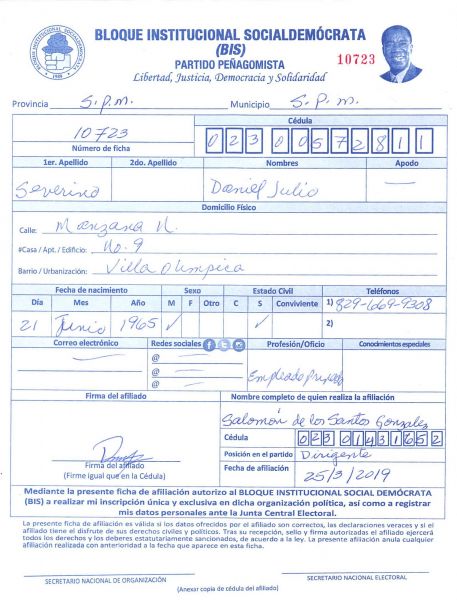 BLOQUE INSTITUCIONAL SOCIALDEMÓCRATA
(BIS)
PARTIDO PEÑAGOMISTA
10723
Libertad, Justicia, Democracia y Solidaridad
Provincia S.P.M. Municipio S.P.M.
10723
Número de ficha
Cédula
02300572811
1er. Apellido 2do. Apellido Nombres Apodo
Severino Daniel Julio —
Domicilio Físico
Calle: Manzana N.
#Casa / Apt. / Edificio: No. 9
Barrio / Urbanización: Villa Olimpica
Fecha de nacimiento Sexo Estado Civil Teléfonos
Día Mes Año M F Otro C S Conviviente 1) 829-669-9308
21 Junio 1965 ✓ ✓ 2)
Correo electrónico Redes sociales Profesión/Oficio Conocimientos especiales
@
@
@
Empleado Privado
Firma del afiliado Nombre completo de quien realiza la afiliación
Salomón de los Santos Gonzalez
Cédula 02301431652
Posición en el partido Dirigente
Fecha de afiliación 25/3/2019
Firma del afiliado
(Firme igual que en la Cédula)
Mediante la presente ficha de afiliación autorizo al BLOQUE INSTITUCIONAL SOCIAL DEMÓCRATA
(BIS) a realizar mi inscripción única y exclusiva en dicha organización política, así como a registrar
mis datos personales ante la Junta Central Electoral.
La presente ficha de afiliación es válida si los datos ofrecidos por el afiliado son correctos, las declaraciones veraces y si el
afiliado tiene el disfrute de sus derechos civiles y políticos. Tras su recepción, sello y firma autorizados el afiliado ejercerá
todos los derechos y los deberes estatutariamente sancionados, de acuerdo a la ley. La presente afiliación anula cualquier
afiliación realizada con anterioridad a la fecha que aparece en esta ficha.
SECRETARIO NACIONAL DE ORGANIZACIÓN SECRETARIO NACIONAL ELECTORAL
(Anexar copia de cédula del afiliado)